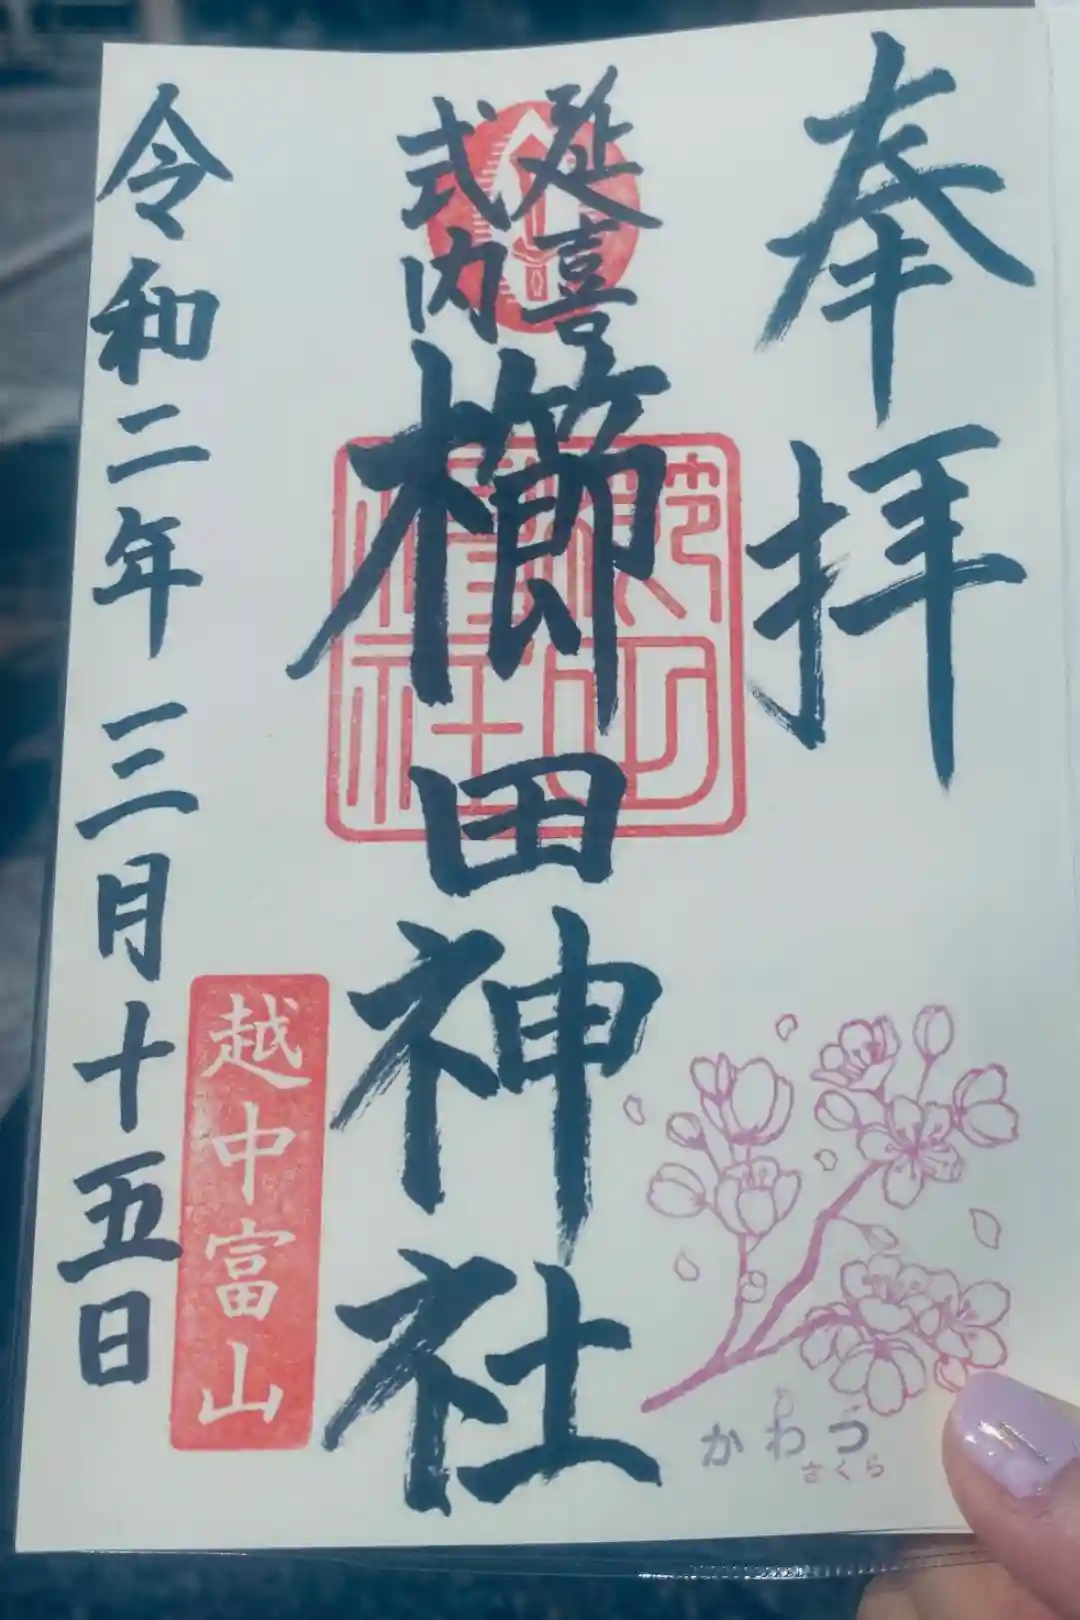 奉拝
延喜
式内
櫛田神社
越中富山
令和二年三月十五日
かわづ
さくら